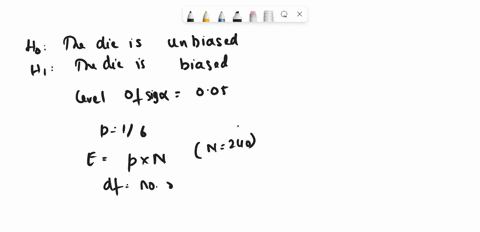 H₀: The die is unbiased
H₁: The die is biased
level of sigα = 0.05
p=1/6
E = p×N (N=240)
df = no.